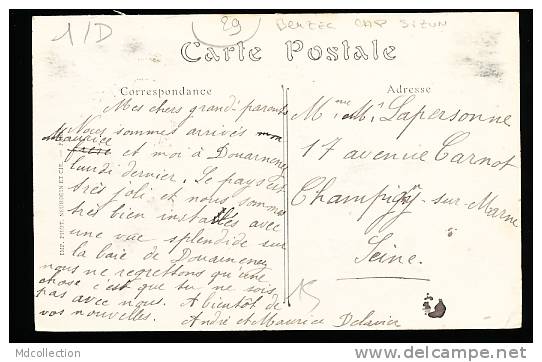 1/D
29
BEUZEC CAP SIZUN
Carte Postale
Correspondance
Adresse
Mes chers grand-parents
Nous sommes arrivés mon
Maurice
frère et moi à Douarnenez
lundi dernier. Le pays est
très joli et nous sommes
très bien installés avec
une vue splendide sur
la baie de Douarnenez
nous ne regrettons qu'une
chose c'est que tu ne sois
pas avec nous. A bientôt de
vos nouvelles.
André et Maurice Delavier
Mme & Mr Lapersonne
17 avenue Carnot
Champigny-sur-Marne
Seine.
Mdcollection
www.delcampe.net